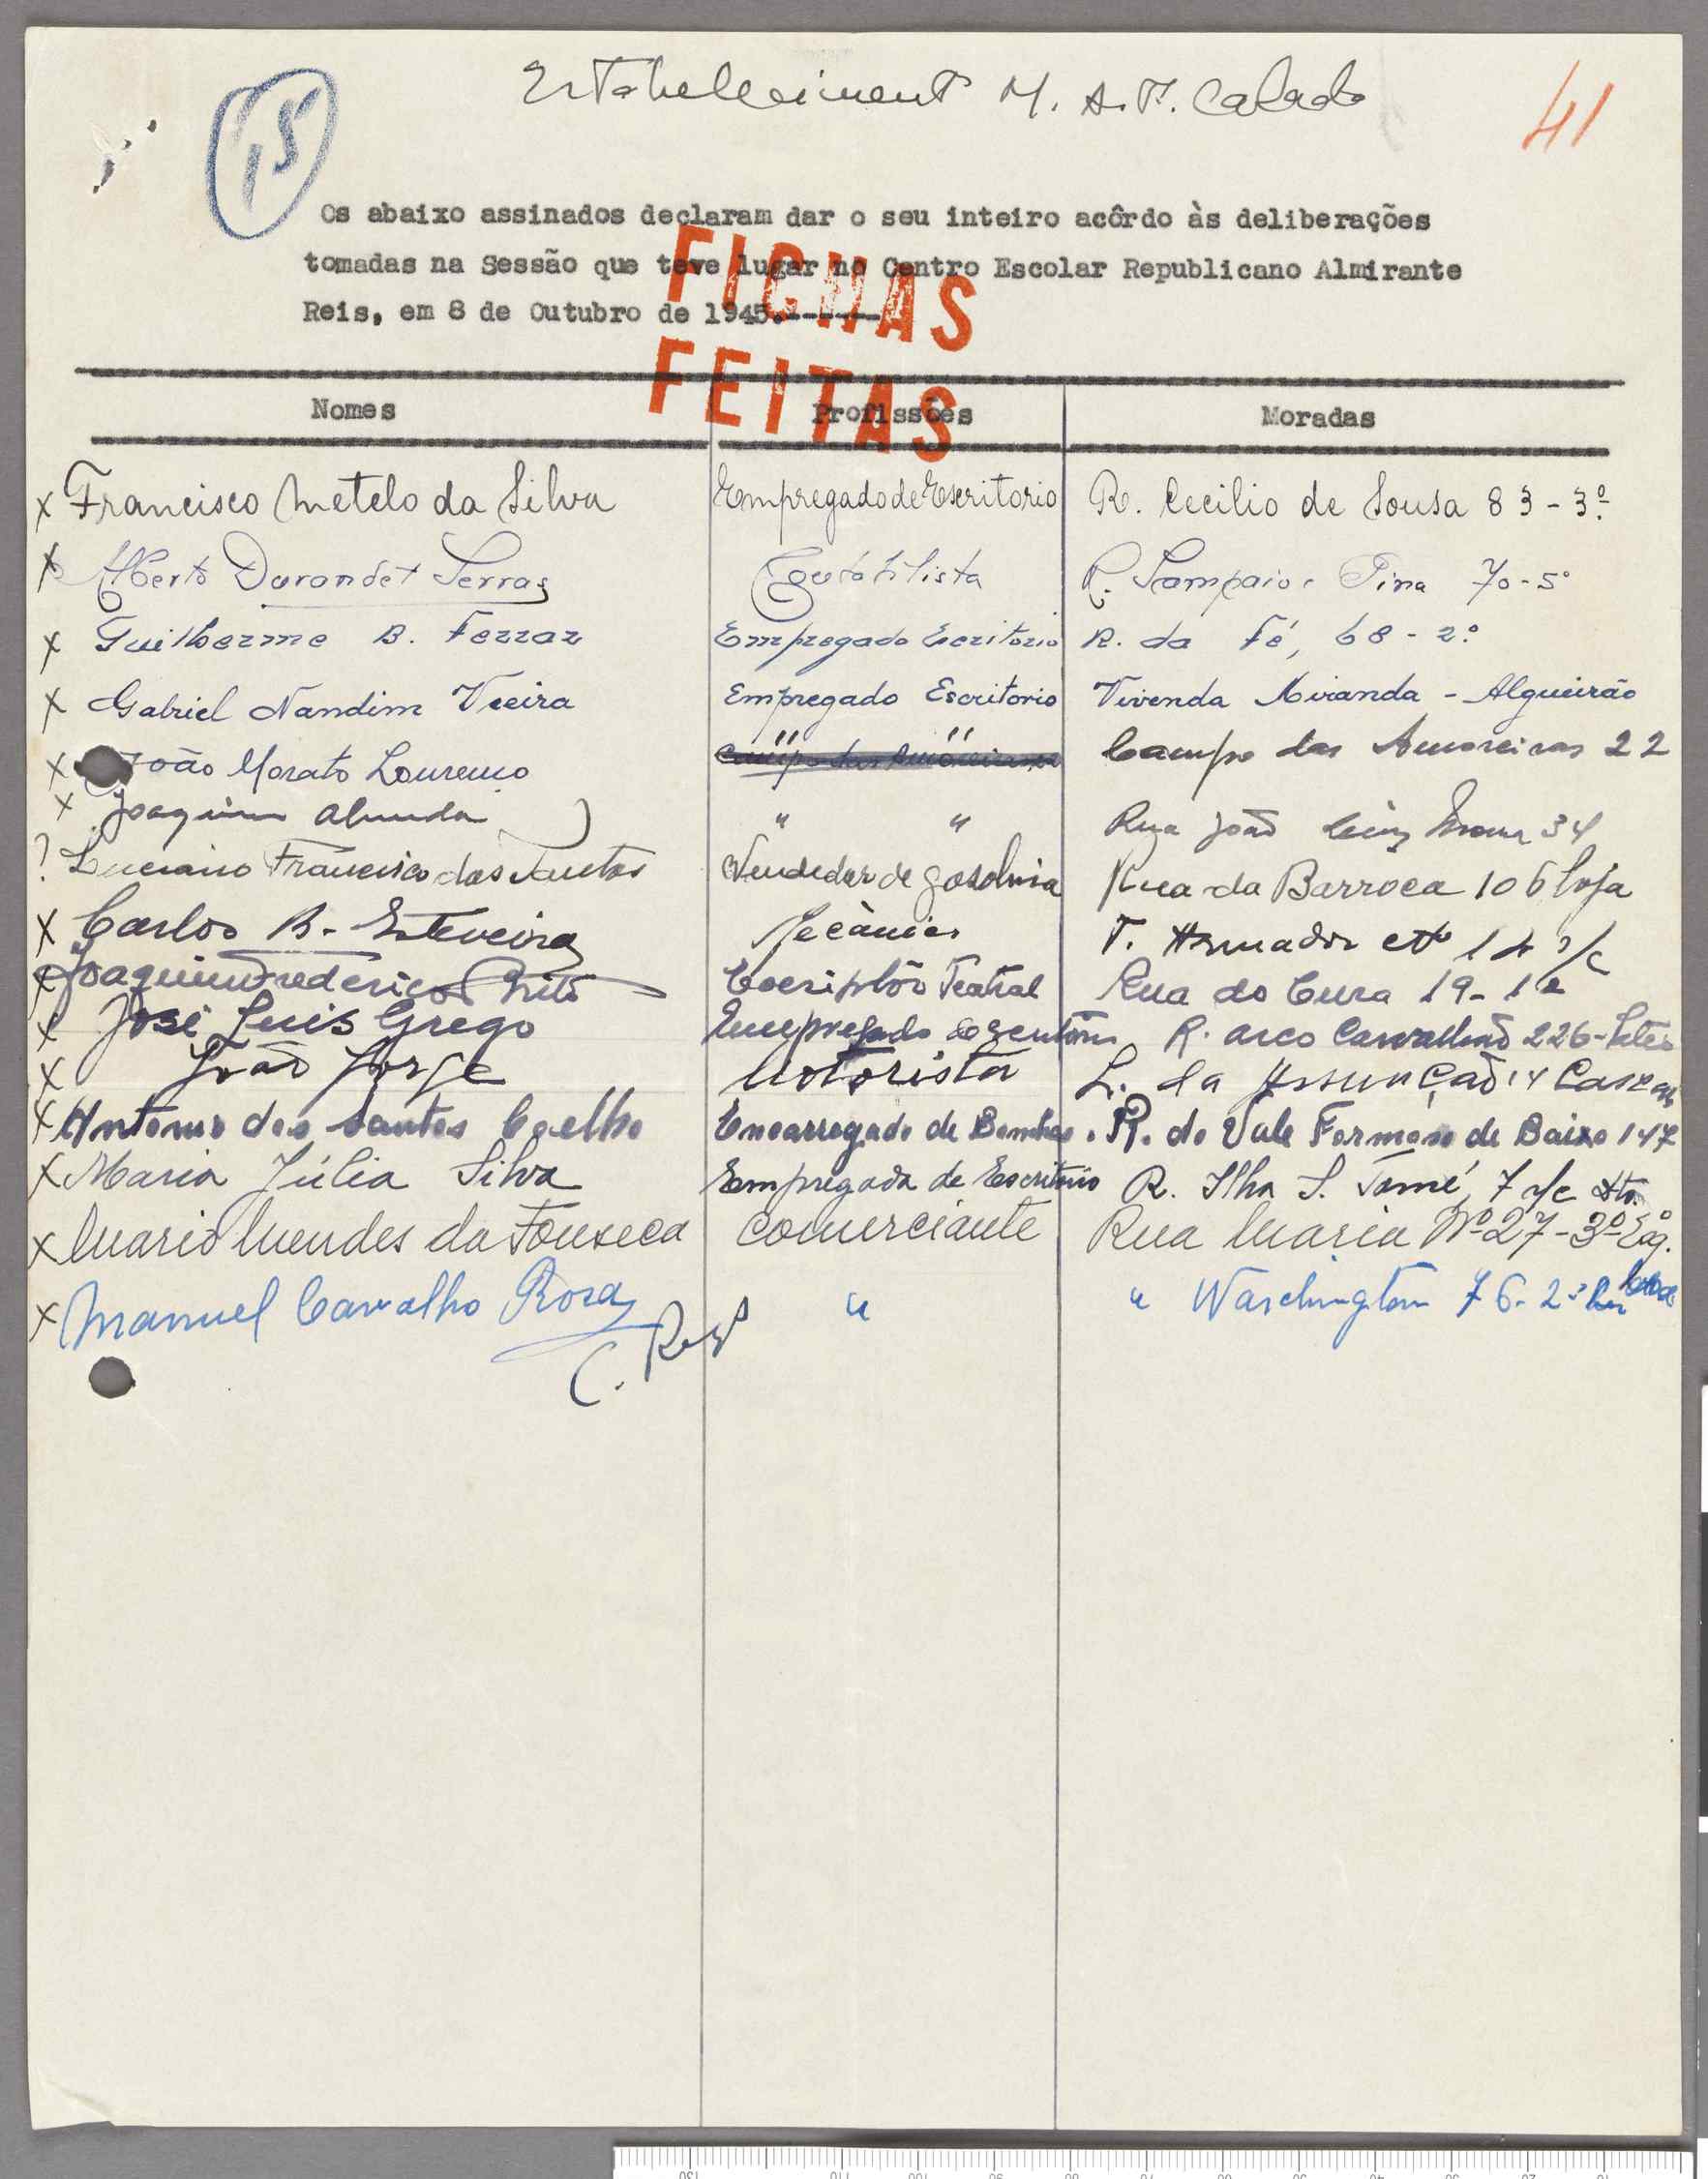 Estabelecimento M. A. P. Calado
15
41
Os abaixo assinados declaram dar o seu inteiro acôrdo às deliberações
tomadas na Sessão que teve lugar no Centro Escolar Republicano Almirante
Reis, em 8 de Outubro de 1945.------
FICHAS
FEITAS
Nomes Profissões Moradas
x Francisco Metelo da Silva Empregado de Escritorio R. Cecilio de Sousa 83-3º
x Alberto Durandet Serras R. Sampaio Pina 70-5º
x Guilherme B. Ferraz Empregado Escritorio R. da Fé, 68-2º
x Gabriel Nandim Vieira Empregado Escritorio Vivenda Miranda - Algueirão
x João Morato Lourenço " " Campo das Amoreiras 22
x Joaquim Almeida " " Rua João 34
? Luciano Francisco dos Santos Vendedor de gasolina Rua da Barroca 106 loja
x Carlos B. Mecânico T. 14 r/c
x Joaquim Frederico Brito Escriptôr Teatral Rua do Cura 19-1º
x José Luis Grego Empregado R. Arco Carvalhão 226-
x João Jorge Motorista L. da Assunção 14 Cascais
x Antonio dos Santos Coelho Encarregado de Bombas. R. do Vale Formoso de Baixo 147
x Maria Júlia Silva Empregada de Escritório R. Ilha S. Tomé, 7 r/c Dto.
x Mario Mendes da Fonseca Comerciante Rua Maria Nº 27-3º Esq.
x Manuel Carvalho Rosa " " Waschington 76-2º